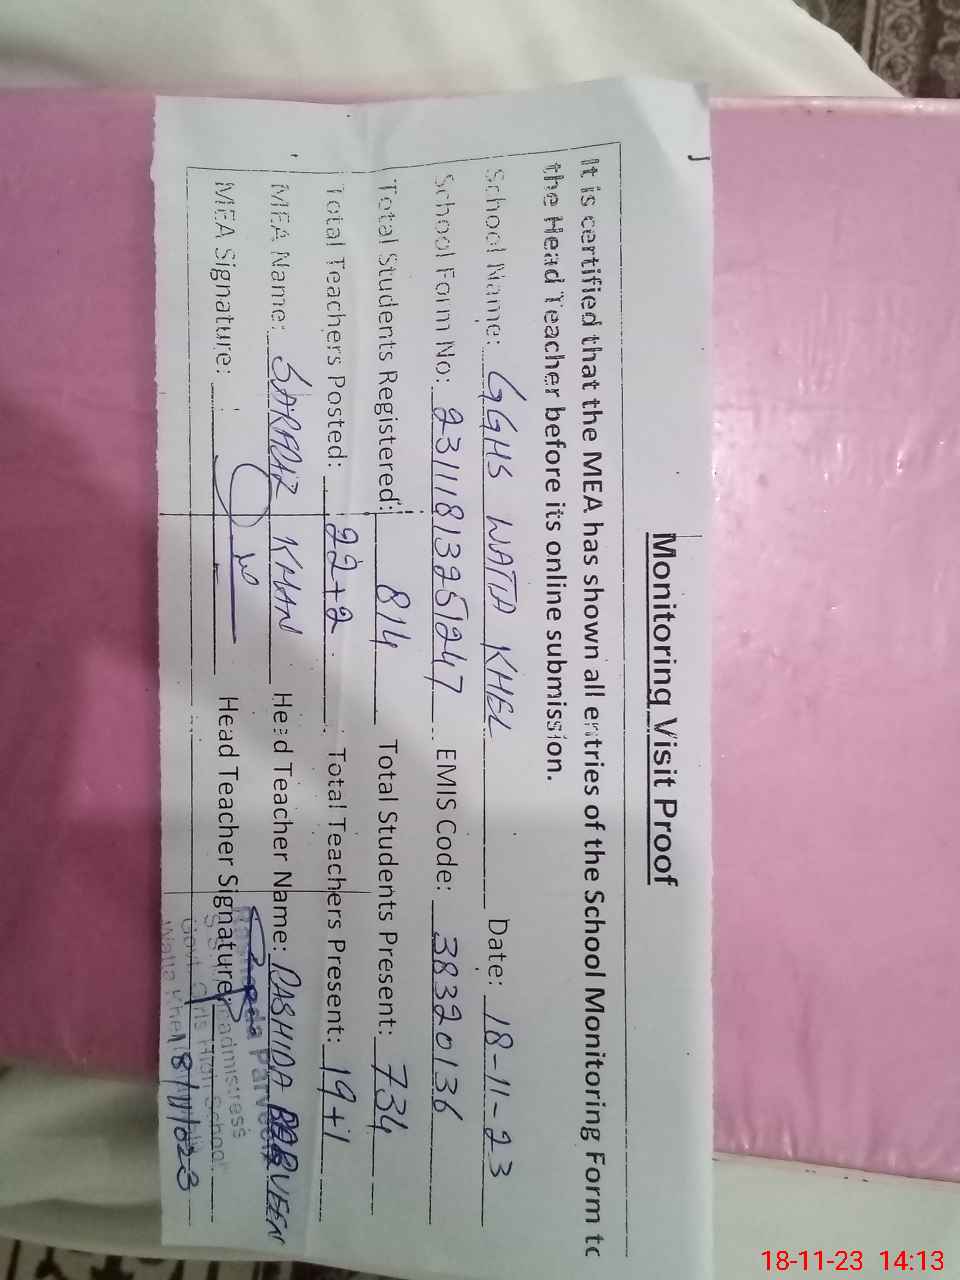 Monitoring Visit Proof
It is certified that the MEA has shown all entries of the School Monitoring Form to
the Head Teacher before its online submission.
School Name: GGHS WATTA KHEL Date: 18-11-23
School Form No: 23111813251247 EMIS Code: 38320136
Total Students Registered: 814 Total Students Present: 734
Total Teachers Posted: 22+2 Total Teachers Present: 19+1
MEA Name: SARFRAZ KHAN Head Teacher Name: RASHIDA PARVEEN
MEA Signature: Head Teacher Signature:
Parveen
Headmistress
Govt. Girls High School
Watta Khel
18/11/023
18-11-23 14:13